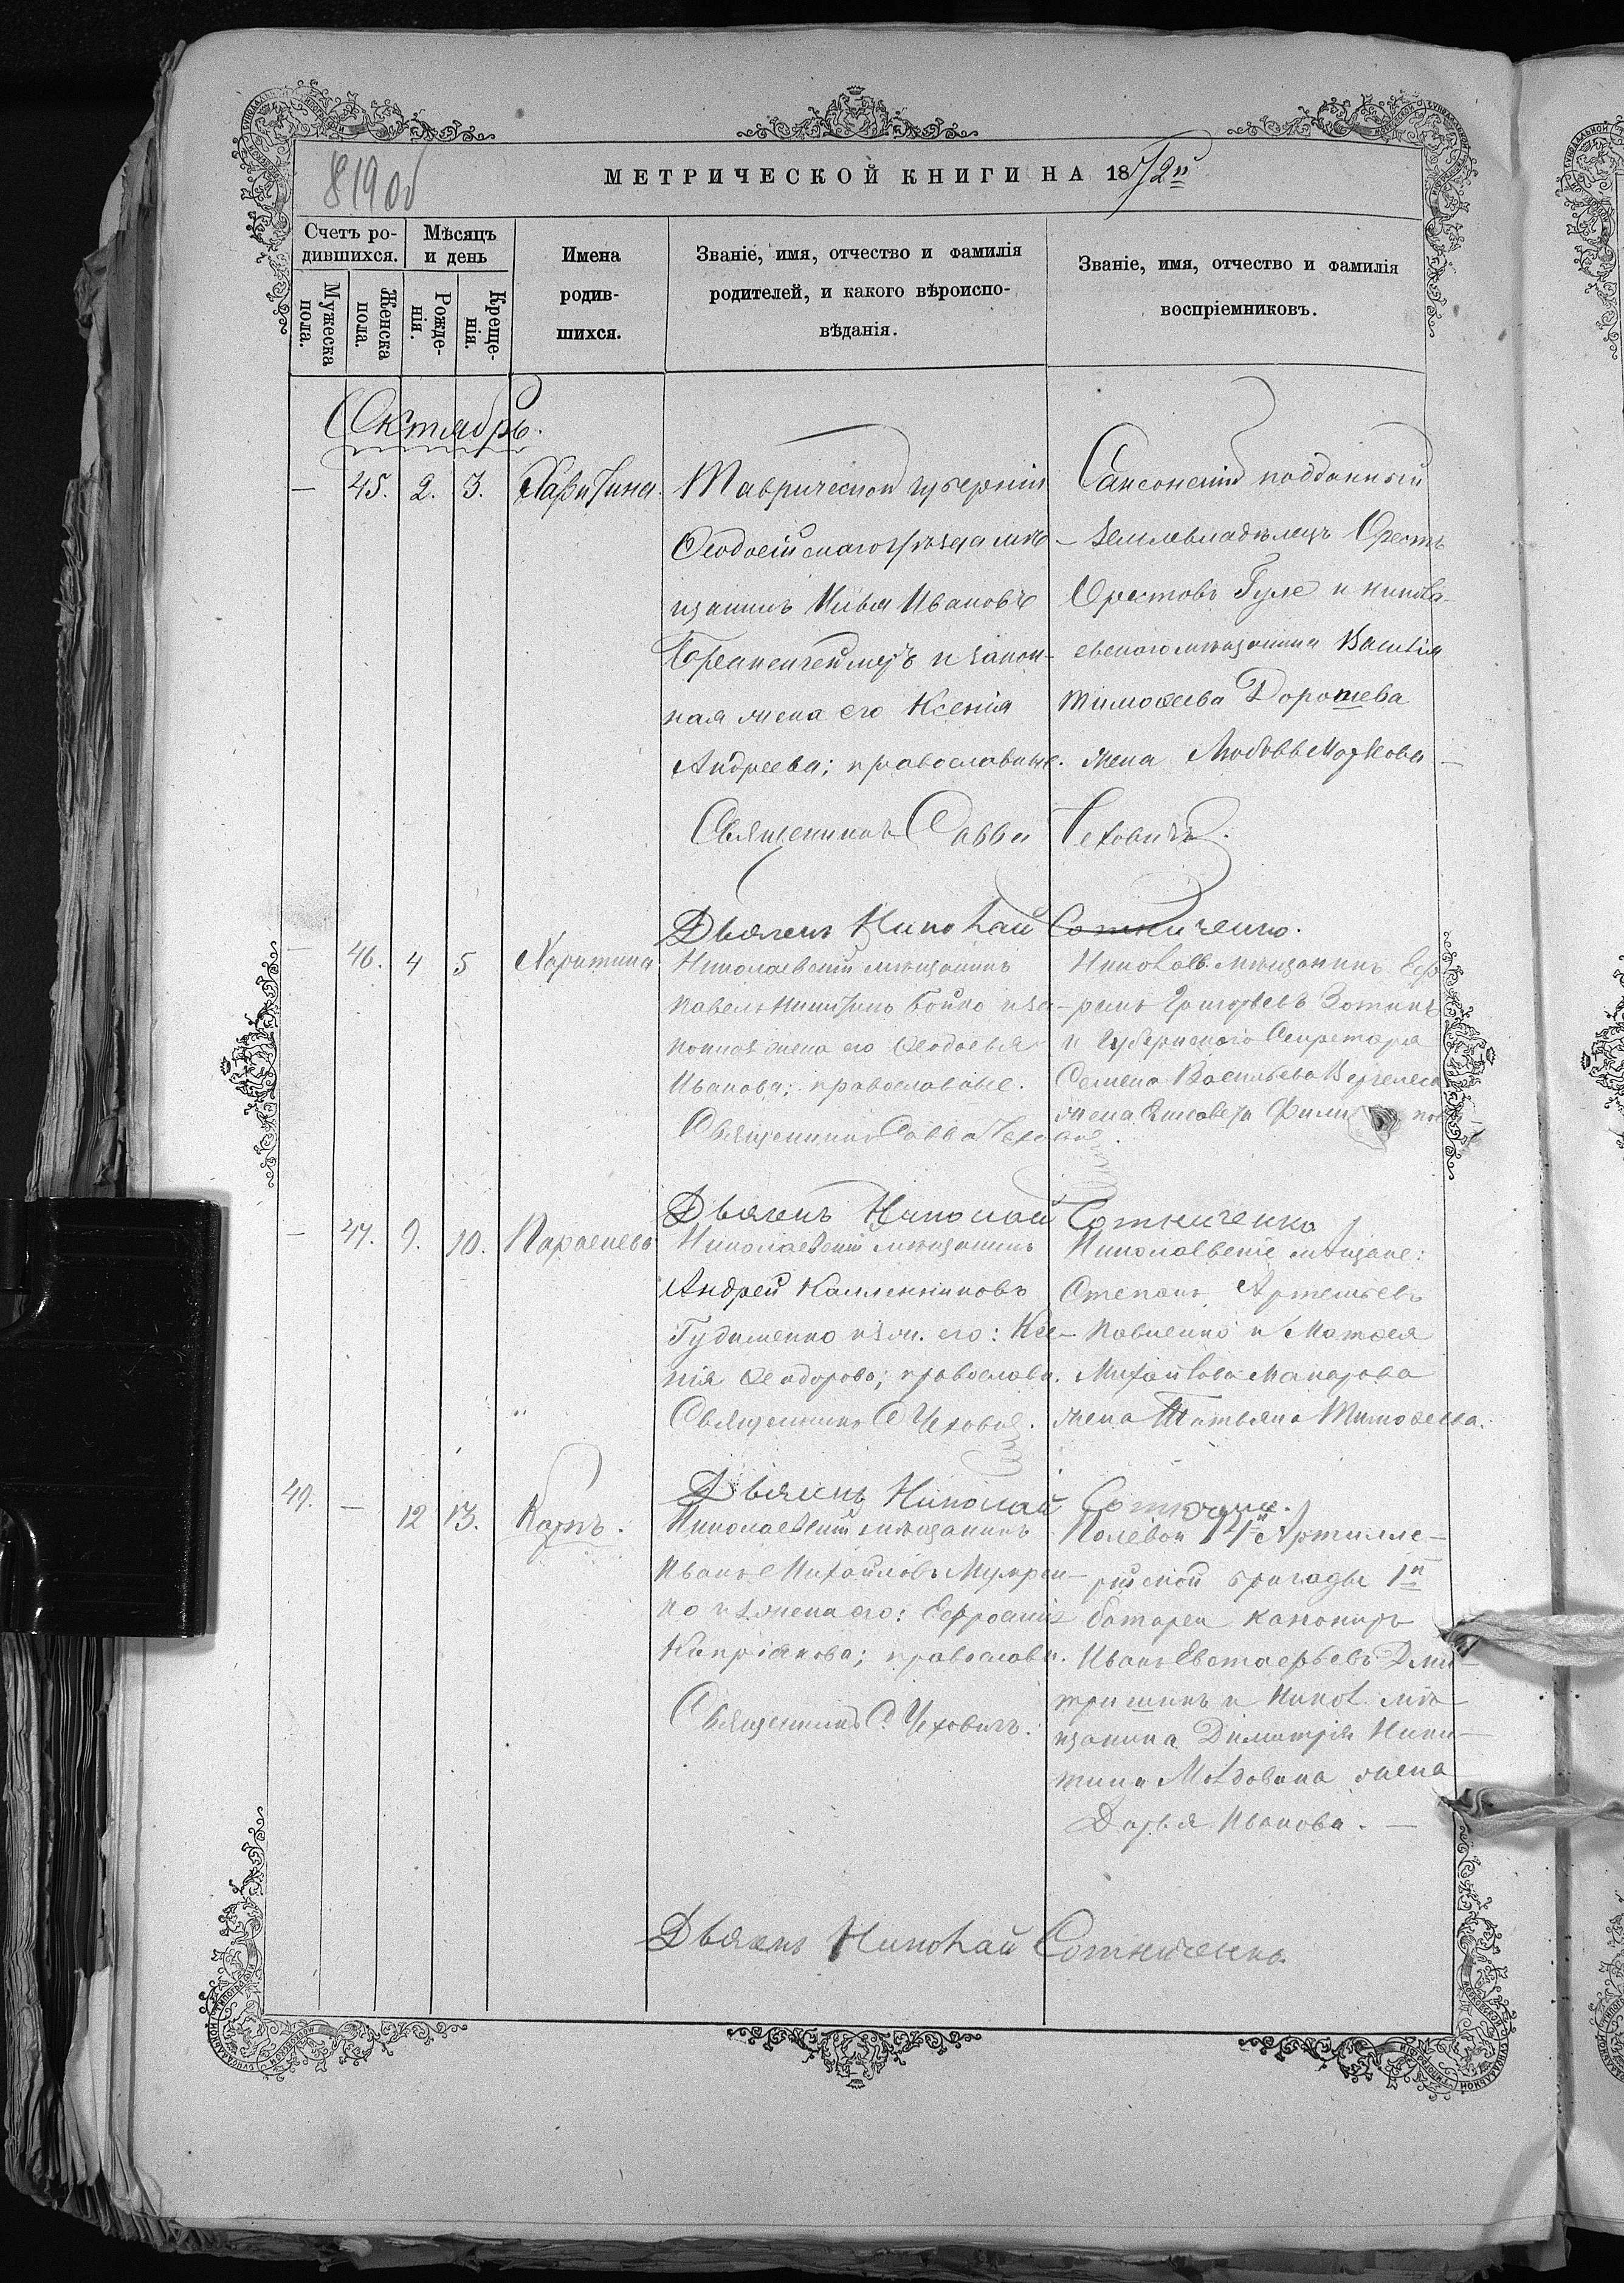 819 об
МЕТРИЧЕСКОЙ КНИГИ НА 1872й
Счетъ ро-
дившихся.
Мѣсяцъ
и день
Мужеска
пола.
Женска
пола.
Рожде-
нія.
Креще-
нія.
Имена
родив-
шихся.
Званіе, имя, отчество и фамилія
родителей, и какого вѣроиспо-
вѣданія.
Званіе, имя, отчество и фамилія
воспріемниковъ.
Октябрь.
— 45. 2. 3. Харитина.
Таврической губерніи
Ѳеодосійскаго уѣзда мѣ-
щанинъ Илья Ивановъ
и закон-
ная жена его Ксенія
Андреева; православные.
Саксонскій подданный
землевладѣлецъ Орестъ
Орестовъ Гуле и никола-
евскаго мѣщанина Василія
Тимоѳеева Дорошева
жена Любовь Маркова —
Священникъ Савва Чеховичъ.
Дьяконъ Николай Сотниченко.
— 46. 4 5 Харитина
Николаевскій мѣщанинъ
Павелъ Никитинъ Бойко и за-
конная жена его Ѳеодосія
Иванова; православные.
Священникъ Савва Чеховичъ
Николаев. мѣщанинъ Еф-
ремъ Григорьевъ Зотинъ
и Губернскаго Секретаря
Семена Васильева
жена Елисавета
Дьяконъ Николай Сотниченко
— 47. 9. 10. Параскева
Николаевскій мѣщанинъ
Андрей Каллениковъ
Гудименко и з. ж. его: Ксе-
нія Ѳеодорова; православн.
Священникъ С Чехович.
Николаевскіе мѣщане:
Степанъ Артемьевъ
Павленко и Матѳея
Михайлова Макарова
жена Татьяна Тимоѳеева.
Дьяконъ Николай Сотниченко.
49. — 12 13. Карпъ.
Николаевскій мѣщанинъ
Иванъ Михайловъ
и з. жена его: Евфросинія
Кипріянова; православн.
Священникъ С. Чеховичъ.
Полевой 14й Артилле-
рійской бригады 1й
батареи канониръ
Иванъ Евстафьевъ Дми-
тришинъ и Никол. мѣ-
щанина Димитрія Ники-
тина Молдована жена
Дарья Иванова. —
Дьяконъ Николай Сотниченко